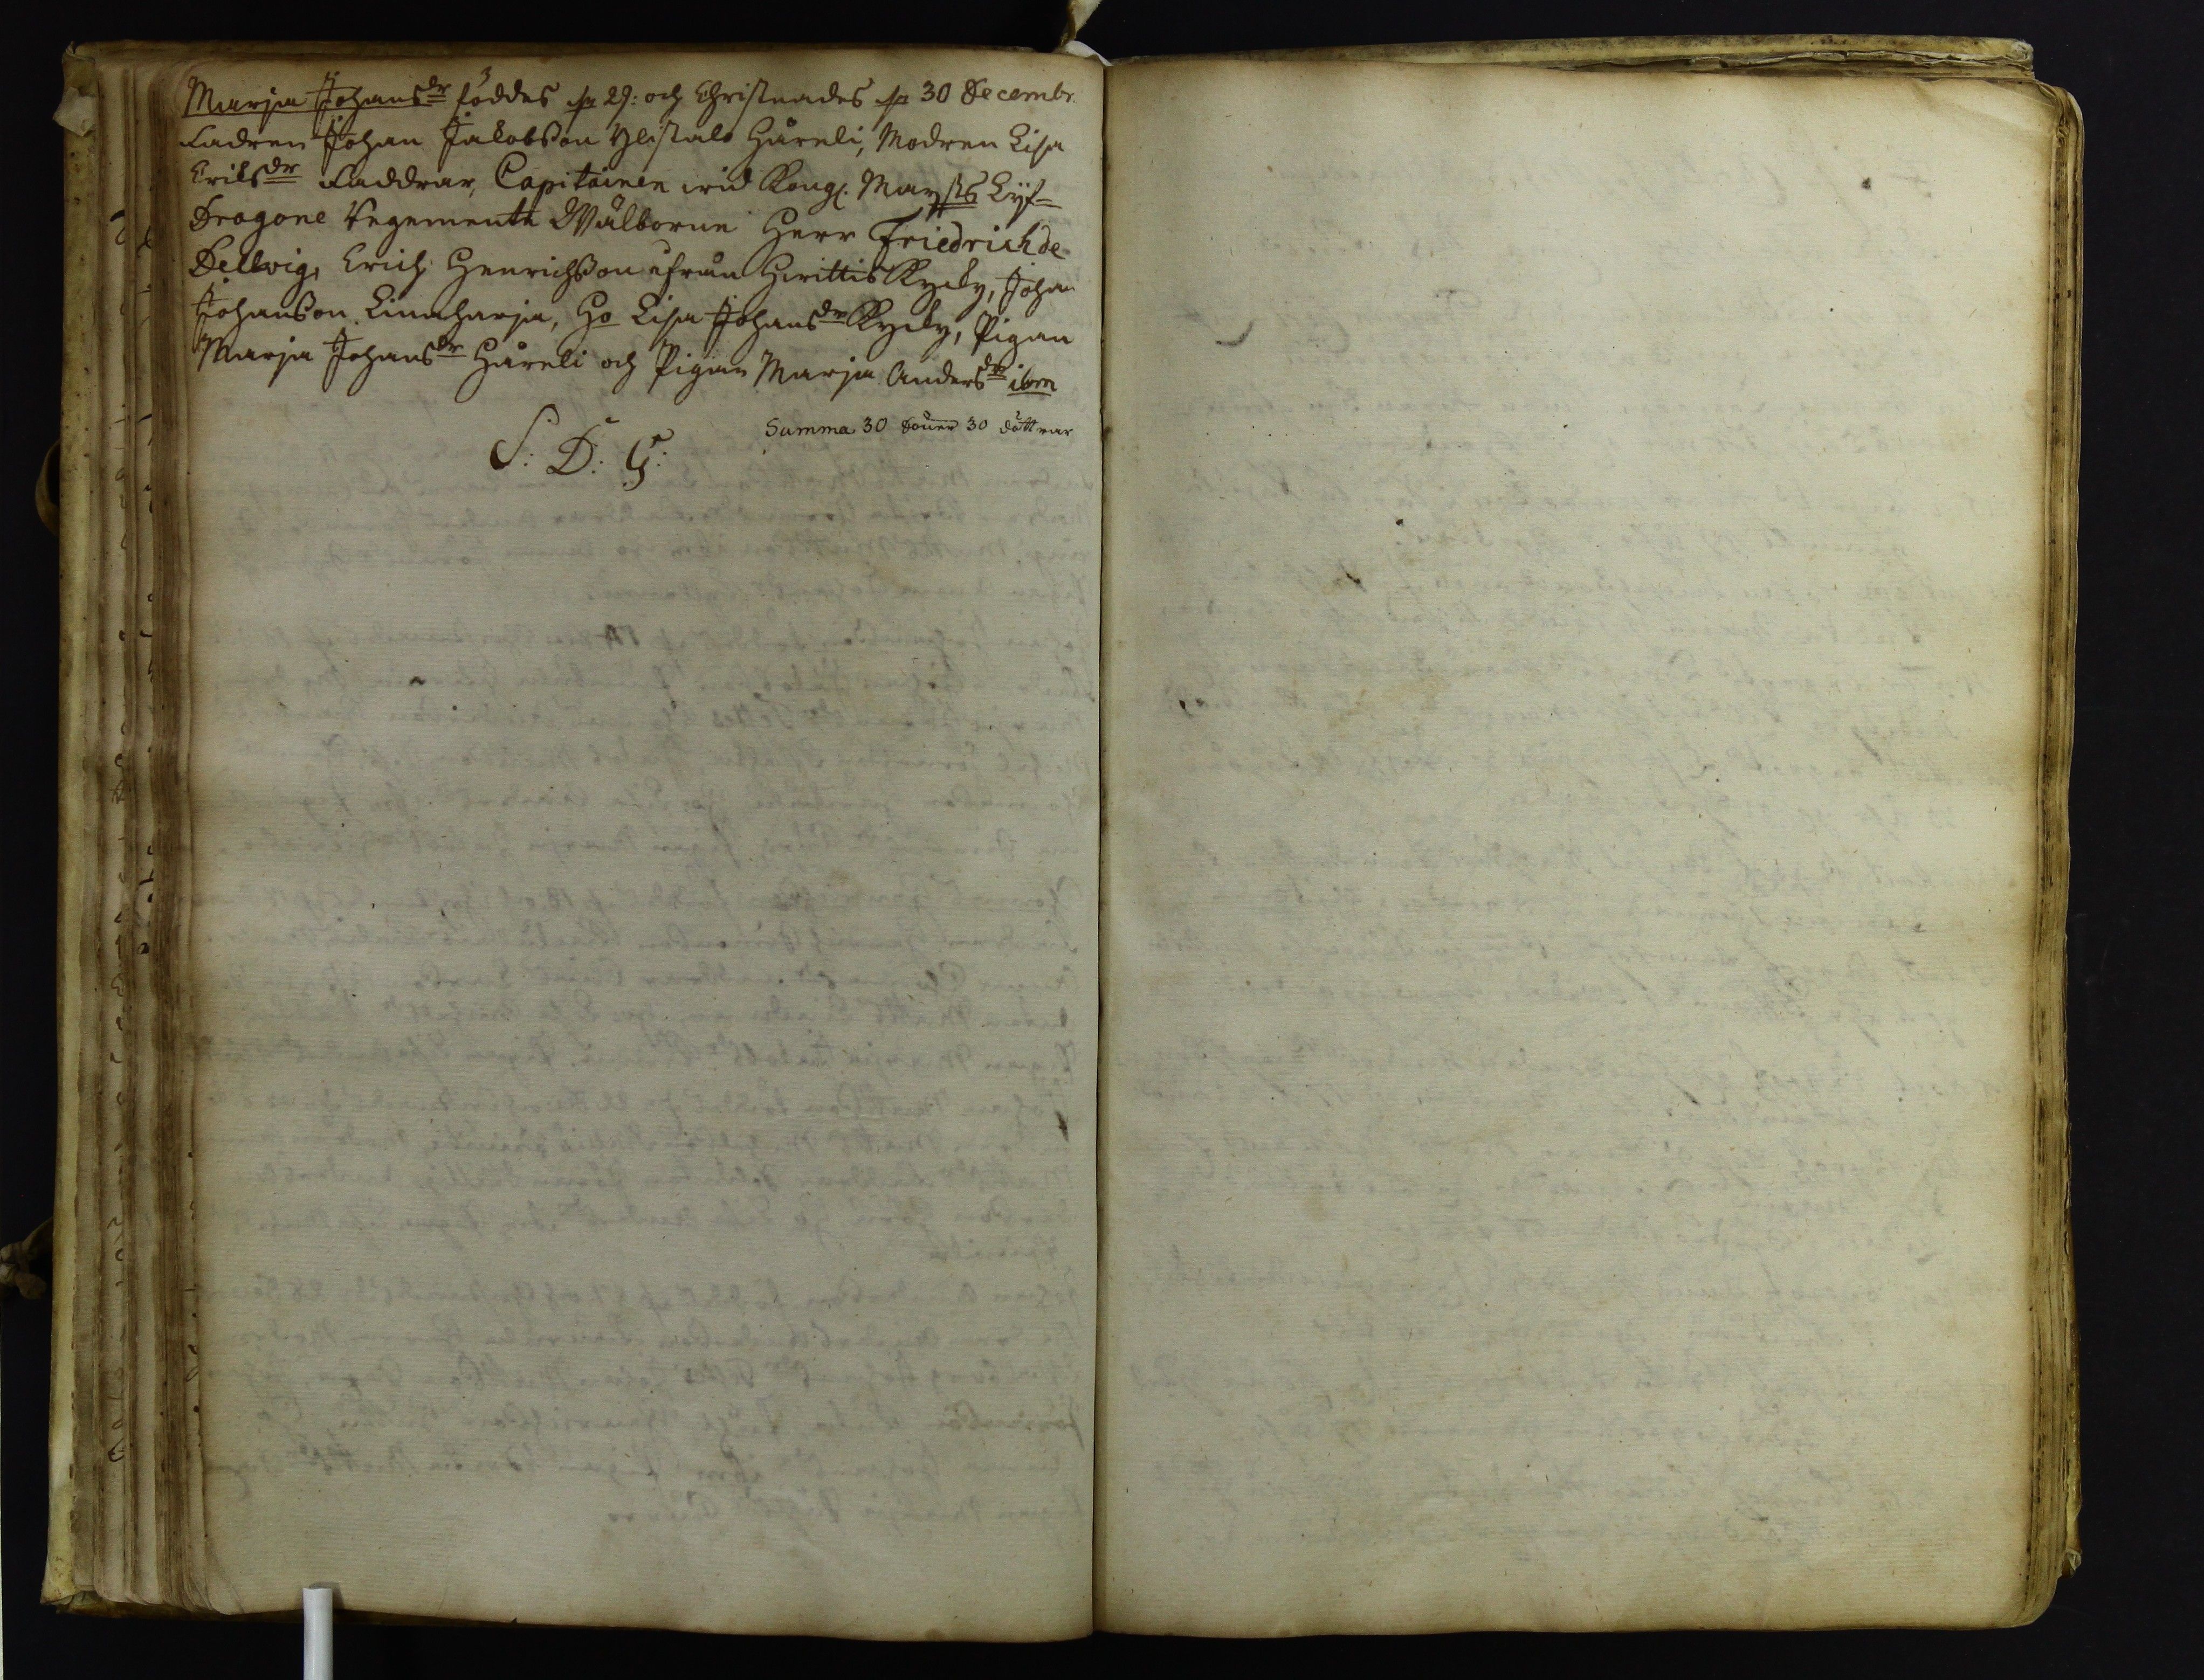 Marja Johans dr föddes d 29: och Christnades d 30 Decembr.
Fadren Johan Jakobßon Ylistalo Håreli, Modren Lisa
Eriks dr Faddrar, Capitainen wid Kongl. May:tts Lijf-
Dragone Regemente Wälborne Herr Friedrich de
Dellwig, Erich Henrichßon ifrån Hirittis Kycky, Johan
Johanßon Linnharja, Ho Lisa Johans dr Kycky, Pigan
Marja Johans dr Håreli och Pigan Marja Anders dr ibm
Summa 30 Söner 30 döttrar
S: D: G: